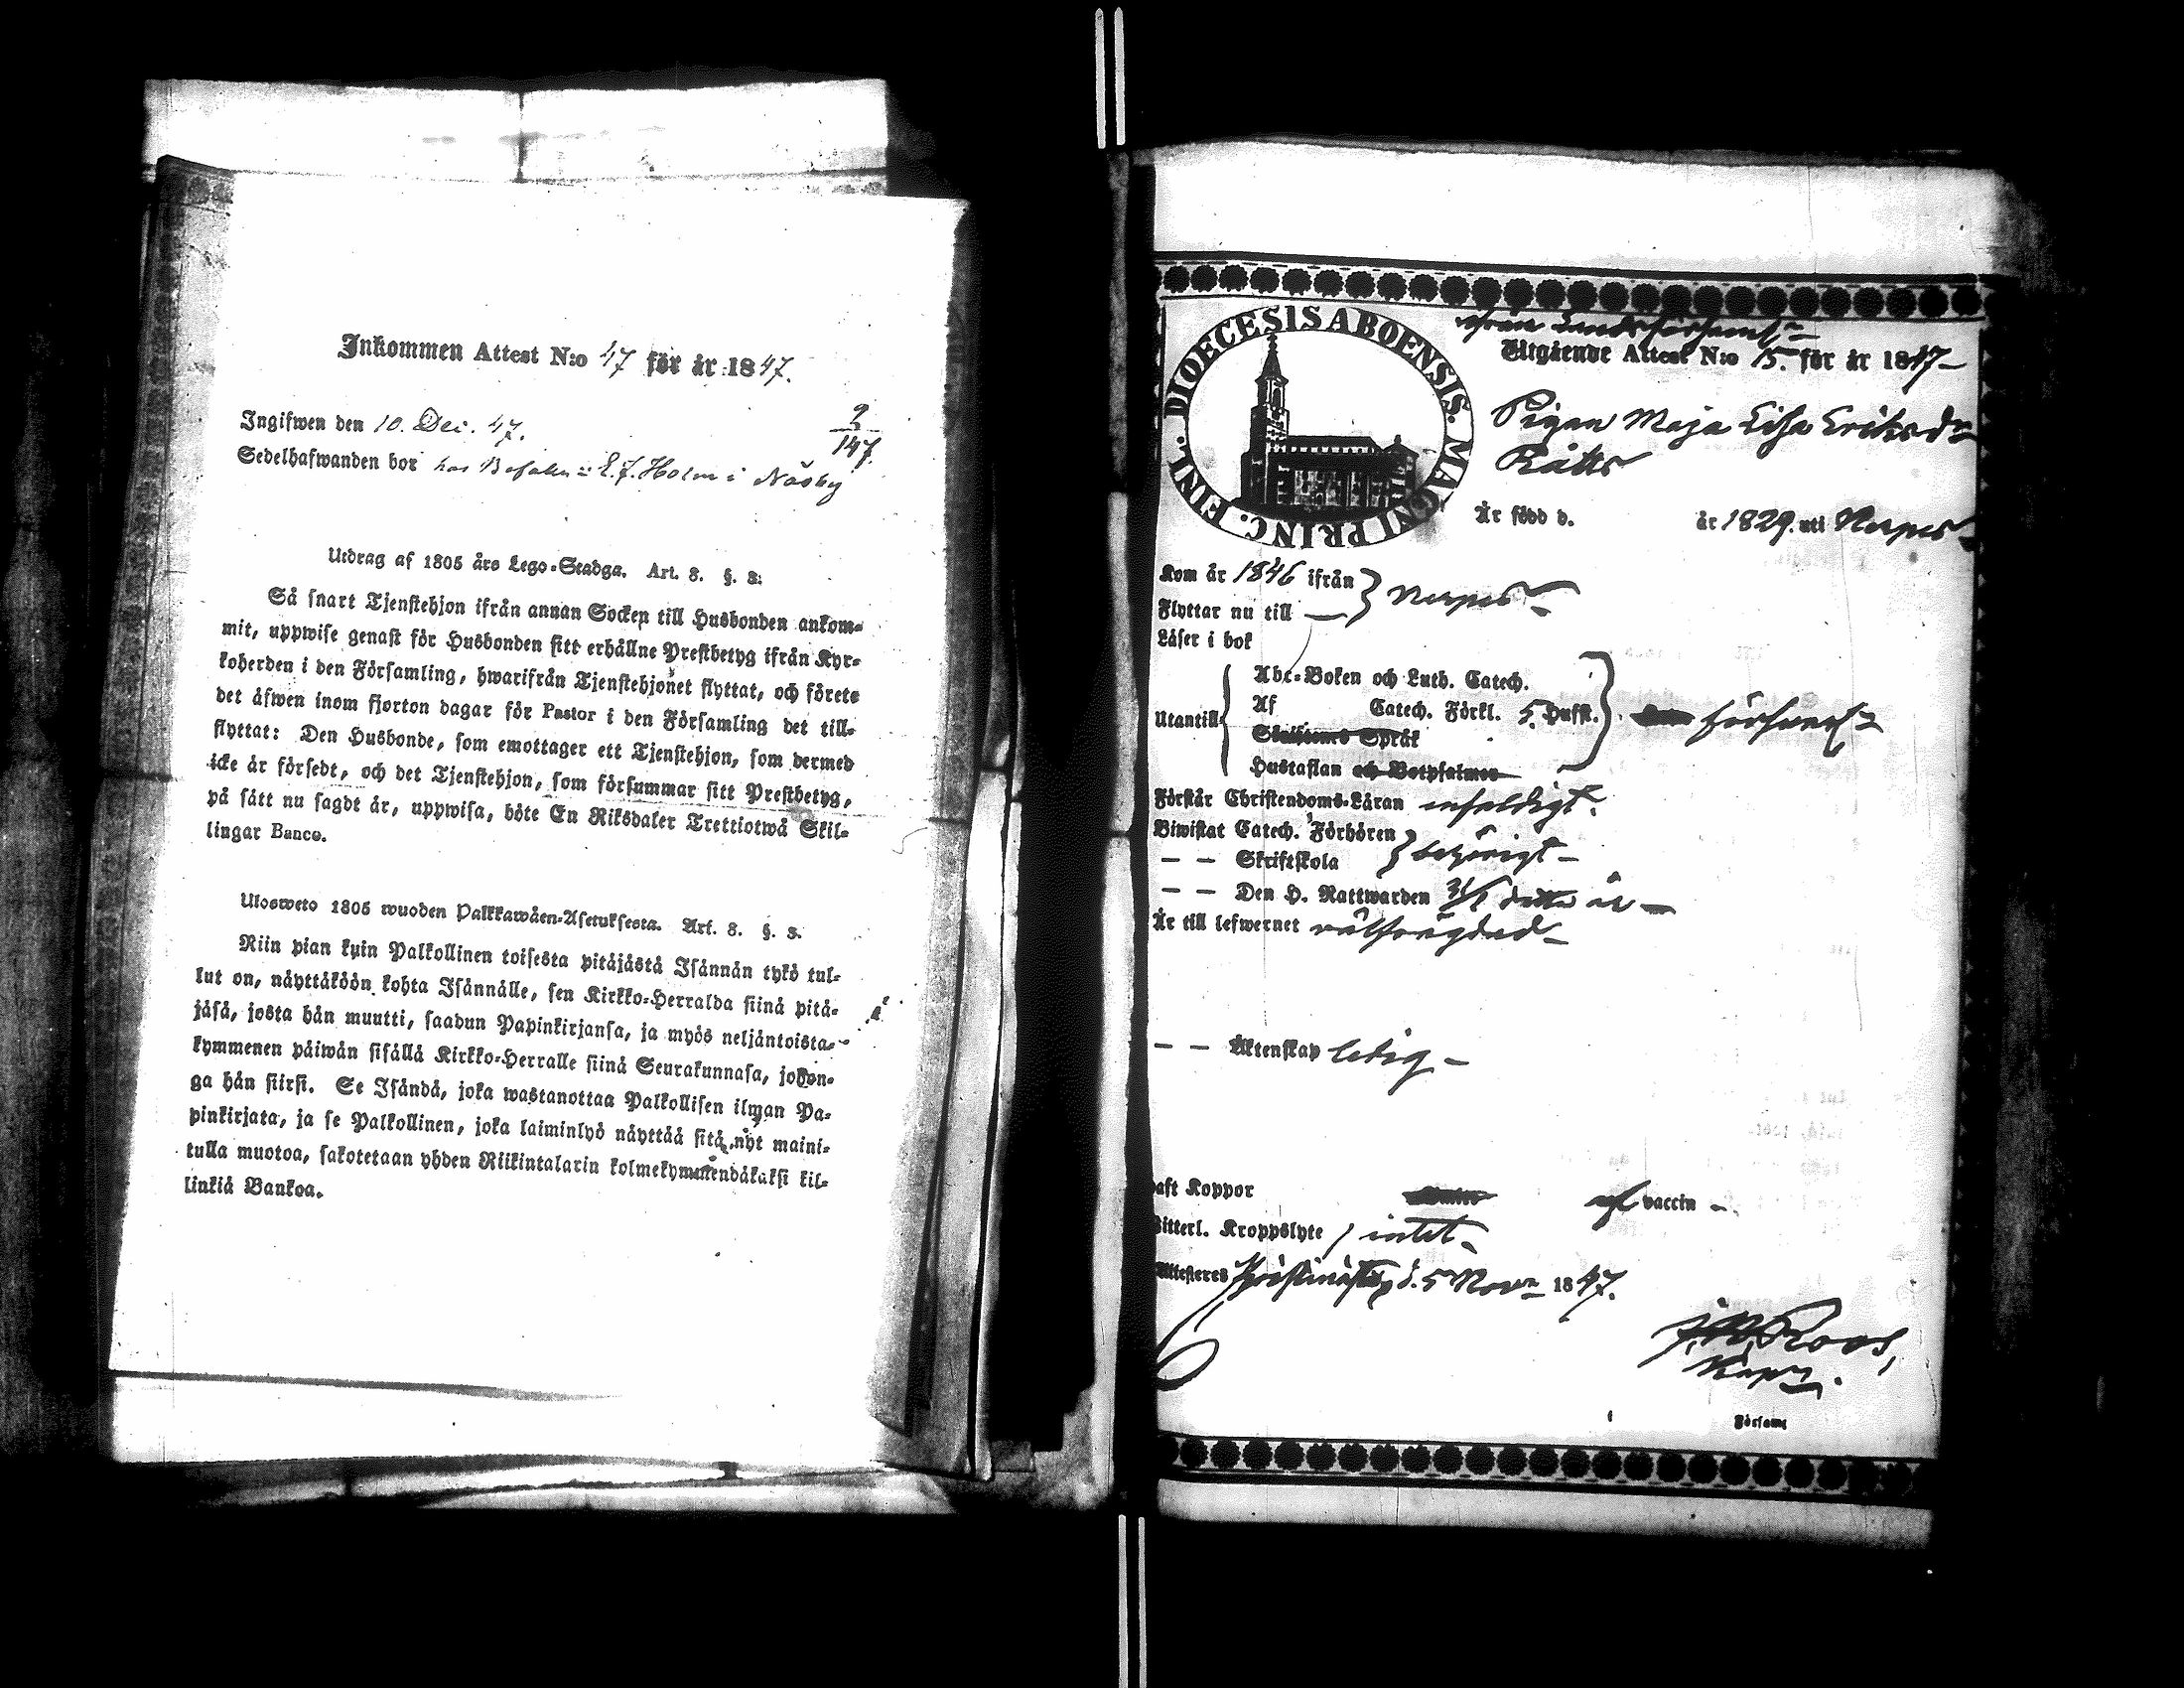 Inkommen Attest N:o 47 för år 1847.
Ingifwen den 10. Dec. 47.
2
147
Sedelhafwanden bor hos Befaln = E. J. Holm i Näsby
Utdrag af 1805 års Lego-Stadga. Art. 8. §. 3.
Så snart Tjenstehjon ifrån annan Socken till Husbonden ankom-
mit, uppwise genast för Husbonden sitt erhållne Prestbetyg ifrån Kyr-
koherden i den Församling, hwarifrån Tjenstehjonet flyttat, och förete
det äfwen inom fjorton dagar för Pastor i den Församling det till-
flyttat: Den Husbonde, som emottager ett Tjenstehjon, som dermed
icke är försedt, och det Tjenstehjon, som försummar sitt Prestbetyg,
på sätt nu sagdt är, uppwisa, böte En Riksdaler Trettiotwå Skil-
lingar Banco.
Ulosweto 1805 wuoden Palkkawäen-Asetuksesta. Art. 8. §. 3.
Niin pian kuin Palkollinen toisesta pitäjästä Isännän tykö tul-
lut on, näyttäköön kohta Isännälle, sen Kirkko-Herralda siinä pitä-
jäsä, josta hän muutti, saadun Papinkirjansa, ja myös neljäntoista-
kymmenen päiwän sisällä Kirkko-Herralle siinä Seurakunnasa, johon-
ga hän siirsi. Se Isändä, joka wastanottaa Palkollisen ilman Pa-
pinkirjata, ja se Palkollinen, joka laiminlyö näyttää sitä nyt maini-
tulla muotoa, sakotetaan yhden Riikintalarin kolmekymmendäkaksi kil-
linkiä Bankoa.
DIOECESIS ABOENSIS. MAGNI PRINC. FINL.
ifrån Landsförsaml:n
Utgående Attest N:o 15. för år 1847
Pigan Maja Lisa Eriksd:r
Rätts
Är född d. år 1829. uti Nerpes
Kom år 1846 ifrån
Flyttar nu till — } Nerpes
Läser i bok
Abc-Boken och Luth. Catech.
Utantill Af Catech. Förkl. 5. Hufst. försvarl:t
Skriftenes Språk
Hustaflan och Botpsalmer
Förstår Christendoms-Läran enfaldigt.
Biwistat Catech. Förhören
— — Skriftskola } behörigt
— — Den H. Nattwarden detta år
Är till lefwernet välfrägdad
— — Äktenskap ledig
haft Koppor vaccin
Witterl. Kroppslyte / intet
Attesteras Kristinestad d. 5 Nov:r 1847.
J. W. Roos,
Kapn.
Församl